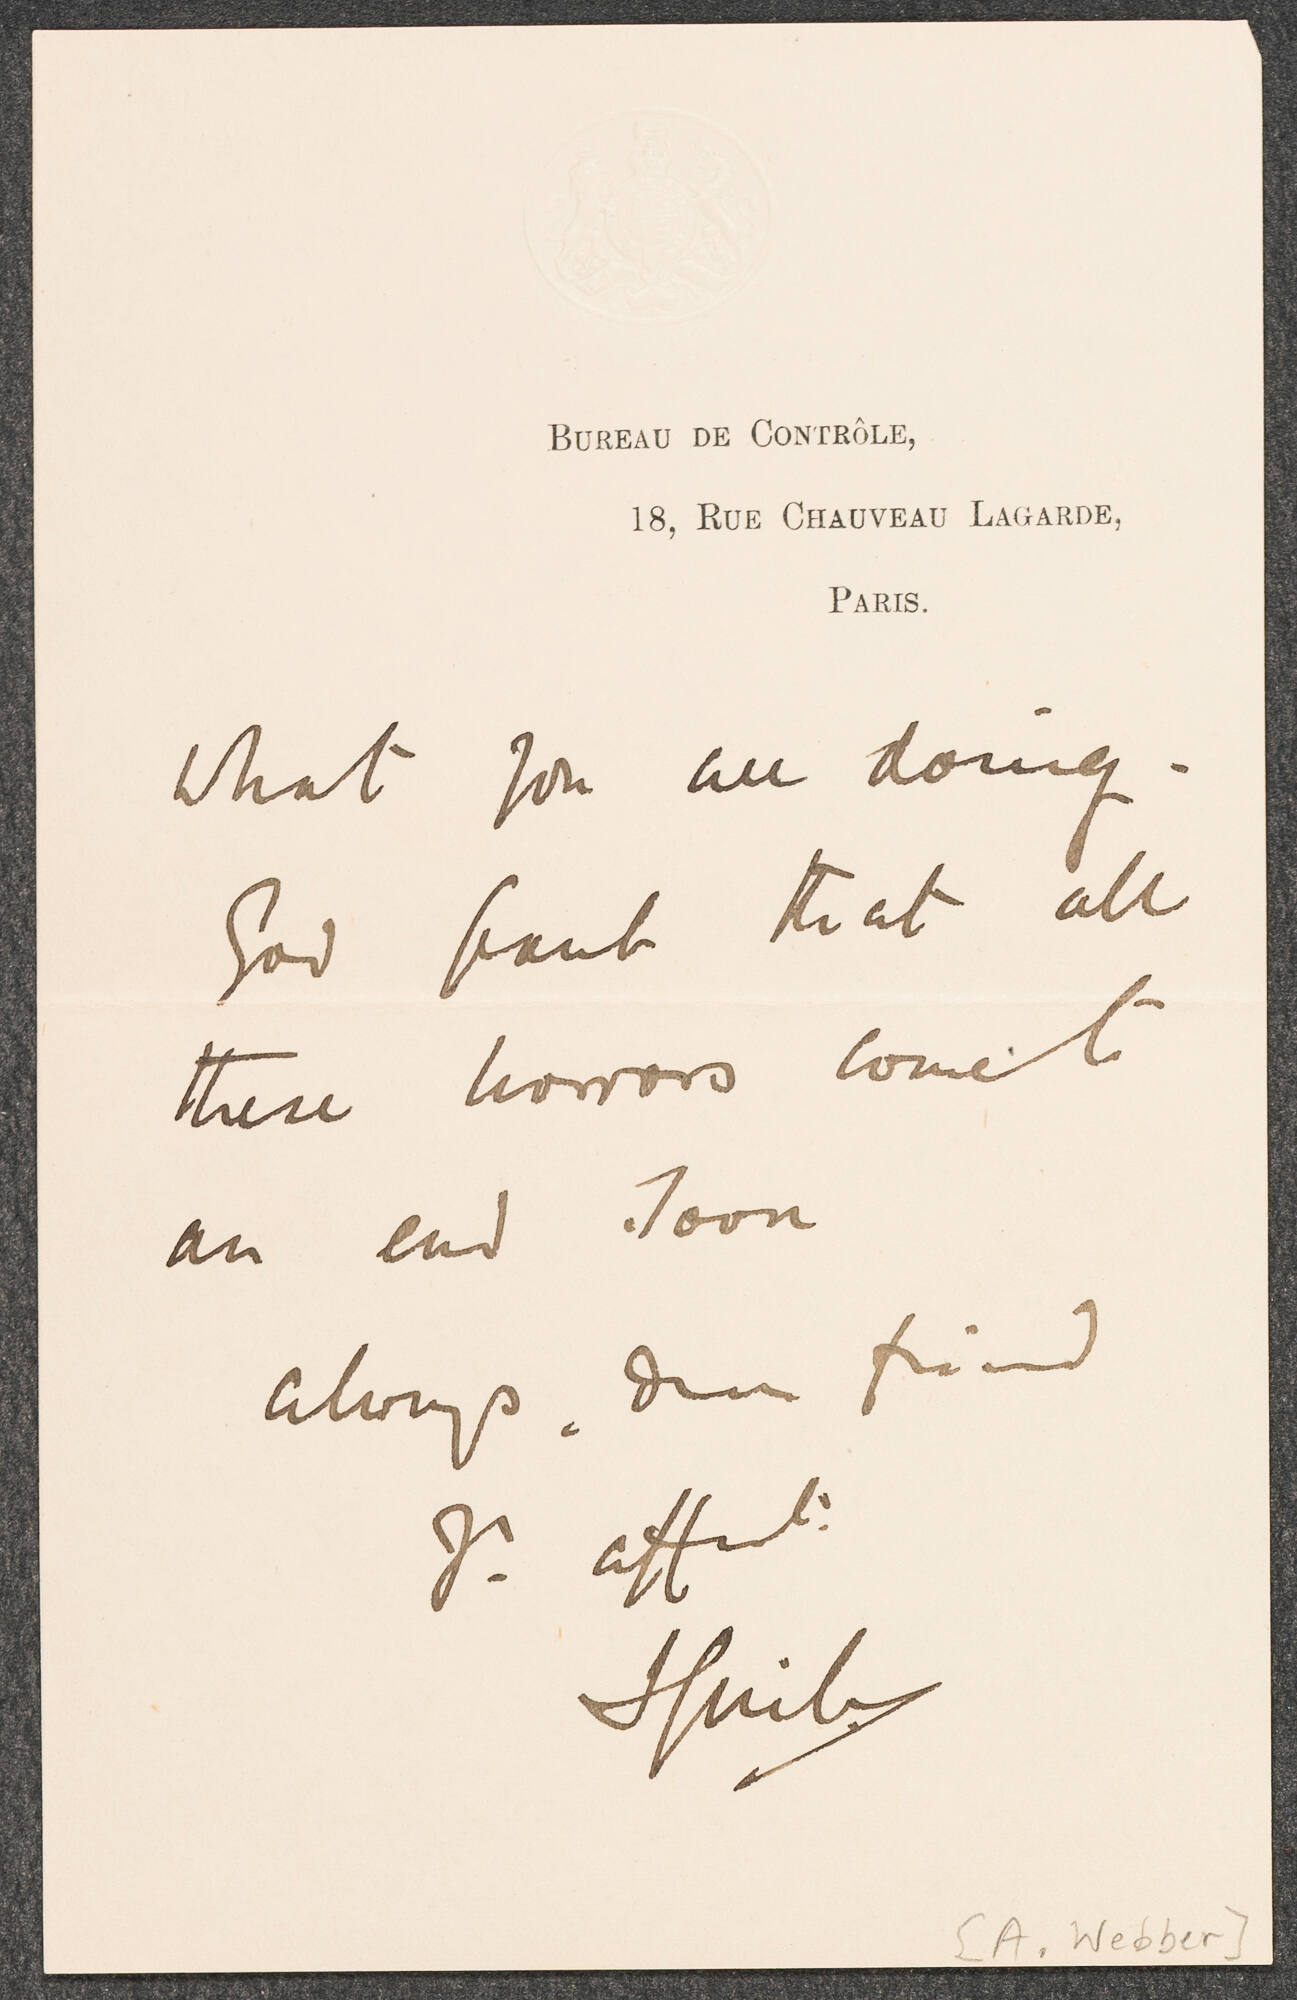 BUREAU DE CONTRÔLE,
18, RUE CHAUVEAU LAGARDE,
PARIS.
what you are doing -
God grant that all
these horrors come to
an end soon
always, dear friend
Yr. affect:
[A. Webber]